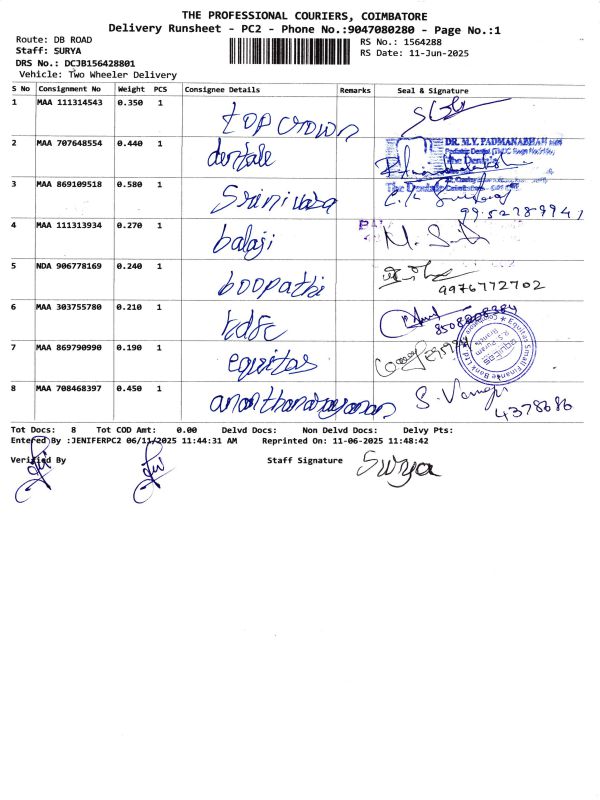 THE PROFESSIONAL COURIERS, COIMBATORE
Delivery Runsheet - PC2 - Phone No.:9047080280 - Page No.:1
Route: DB ROAD RS No.: 1564288
Staff: SURYA RS Date: 11-Jun-2025
DRS No.: DCJB156428801
Vehicle: Two Wheeler Delivery
S No Consignment No Weight PCS Consignee Details Remarks Seal & Signature
1 MAA 111314543 0.350 1 top crown
2 MAA 707648554 0.440 1 dentale DR. M.Y. PADMANABHAN
3 MAA 869109518 0.580 1 Srinivasa
4 MAA 111313934 0.270 1 balaji
5 NDA 906778169 0.240 1 boopathi 9976772702
6 MAA 303755780 0.210 1
7 MAA 869790990 0.190 1 equitas Equitas Small Finance Bank Ltd
8 MAA 708468397 0.450 1 ananthanarayanan 4378686
Tot Docs: 8 Tot COD Amt: 0.00 Delvd Docs: Non Delvd Docs: Delvy Pts:
Entered By :JENIFERPC2 06/11/2025 11:44:31 AM Reprinted On: 11-06-2025 11:48:42
Verified By Staff Signature Surya